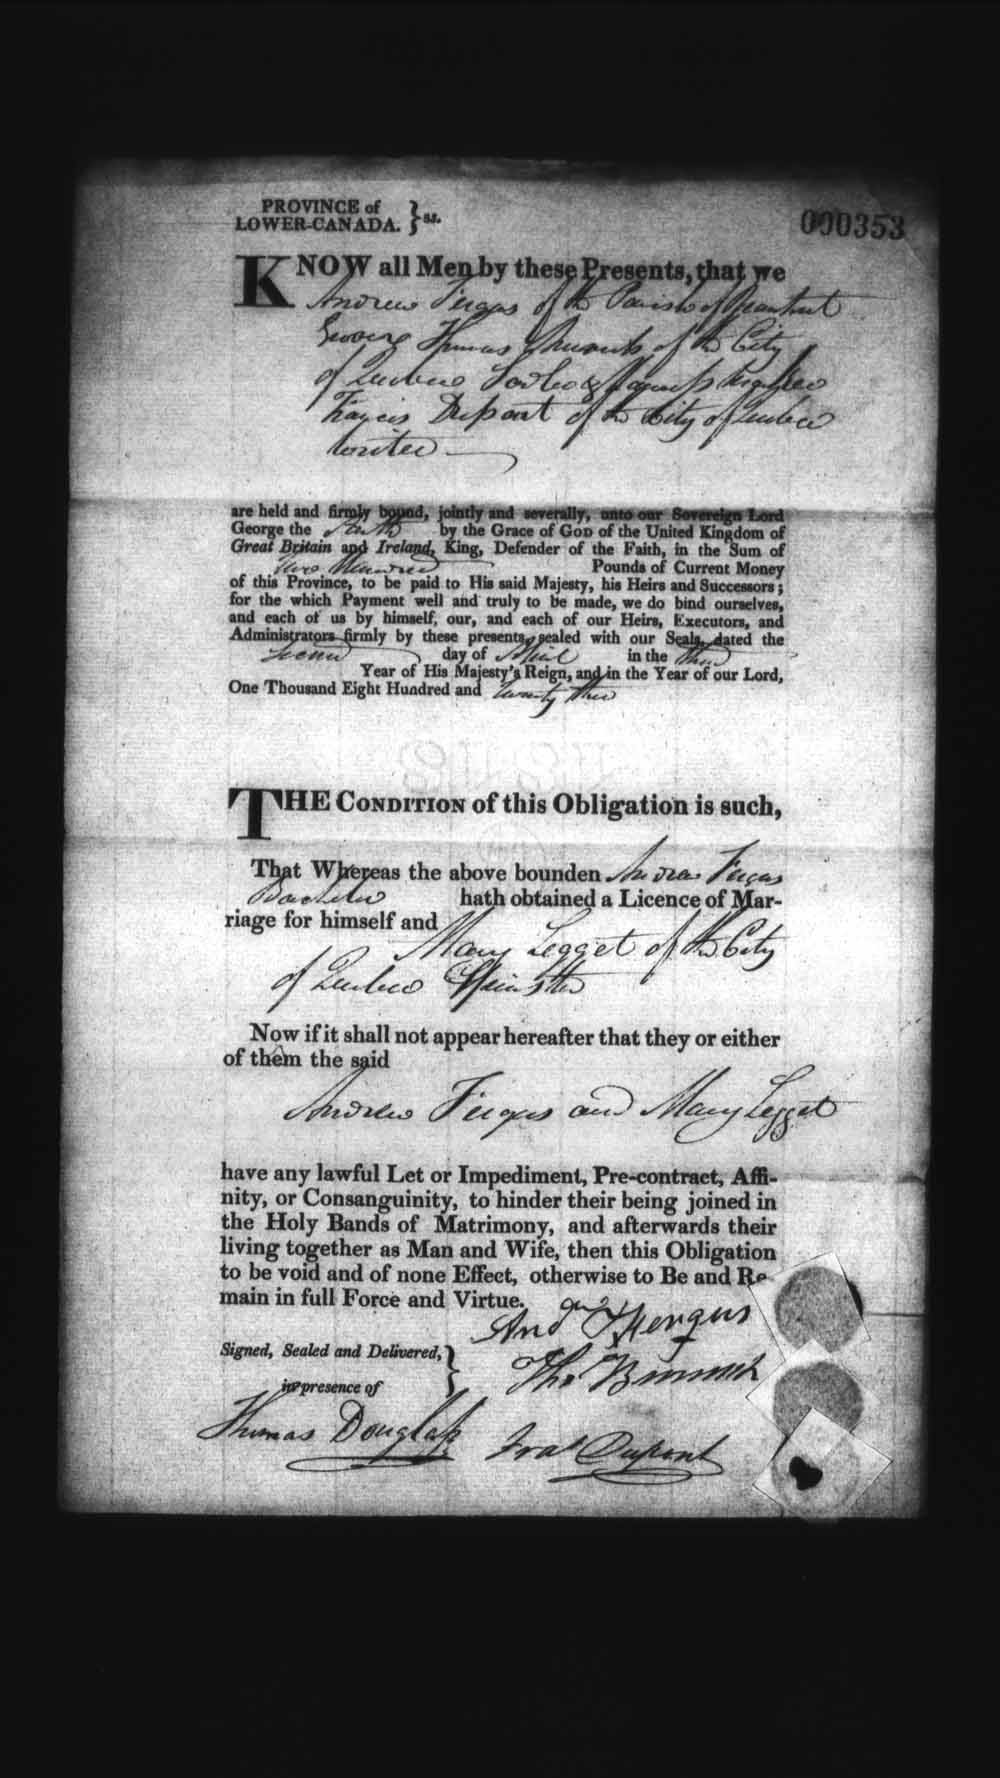 PROVINCE of
LOWER-CANADA. } ss.
000353
KNOW all Men by these Presents, that we
Andrew Fergus of the Parish of
Thomas of the City
of Quebec &
Francis Dupont of the City of Quebec
Writer
are held and firmly bound, jointly and severally, unto our Sovereign Lord
George the by the Grace of GOD of the United Kingdom of
Great Britain and Ireland, King, Defender of the Faith, in the Sum of
Two Hundred Pounds of Current Money
of this Province, to be paid to His said Majesty, his Heirs and Successors;
for the which Payment well and truly to be made, we do bind ourselves,
and each of us by himself, our, and each of our Heirs, Executors, and
Administrators firmly by these presents, sealed with our Seals, dated the
Second day of April in the third
Year of His Majesty's Reign, and in the Year of our Lord,
One Thousand Eight Hundred and twenty three
THE CONDITION of this Obligation is such,
That Whereas the above bounden Andrew Fergus
Bachelor hath obtained a Licence of Mar-
riage for himself and
Mary Legget of the City
of Quebec Spinster
Now if it shall not appear hereafter that they or either
of them the said
Andrew Fergus and Mary Legget
have any lawful Let or Impediment, Pre-contract, Affi-
nity, or Consanguinity, to hinder their being joined in
the Holy Bands of Matrimony, and afterwards their
living together as Man and Wife, then this Obligation
to be void and of none Effect, otherwise to Be and Re-
main in full Force and Virtue.
Andw Fergus
Signed, Sealed and Delivered, }
Tho
in presence of
Thomas Douglass
Fras Dupont